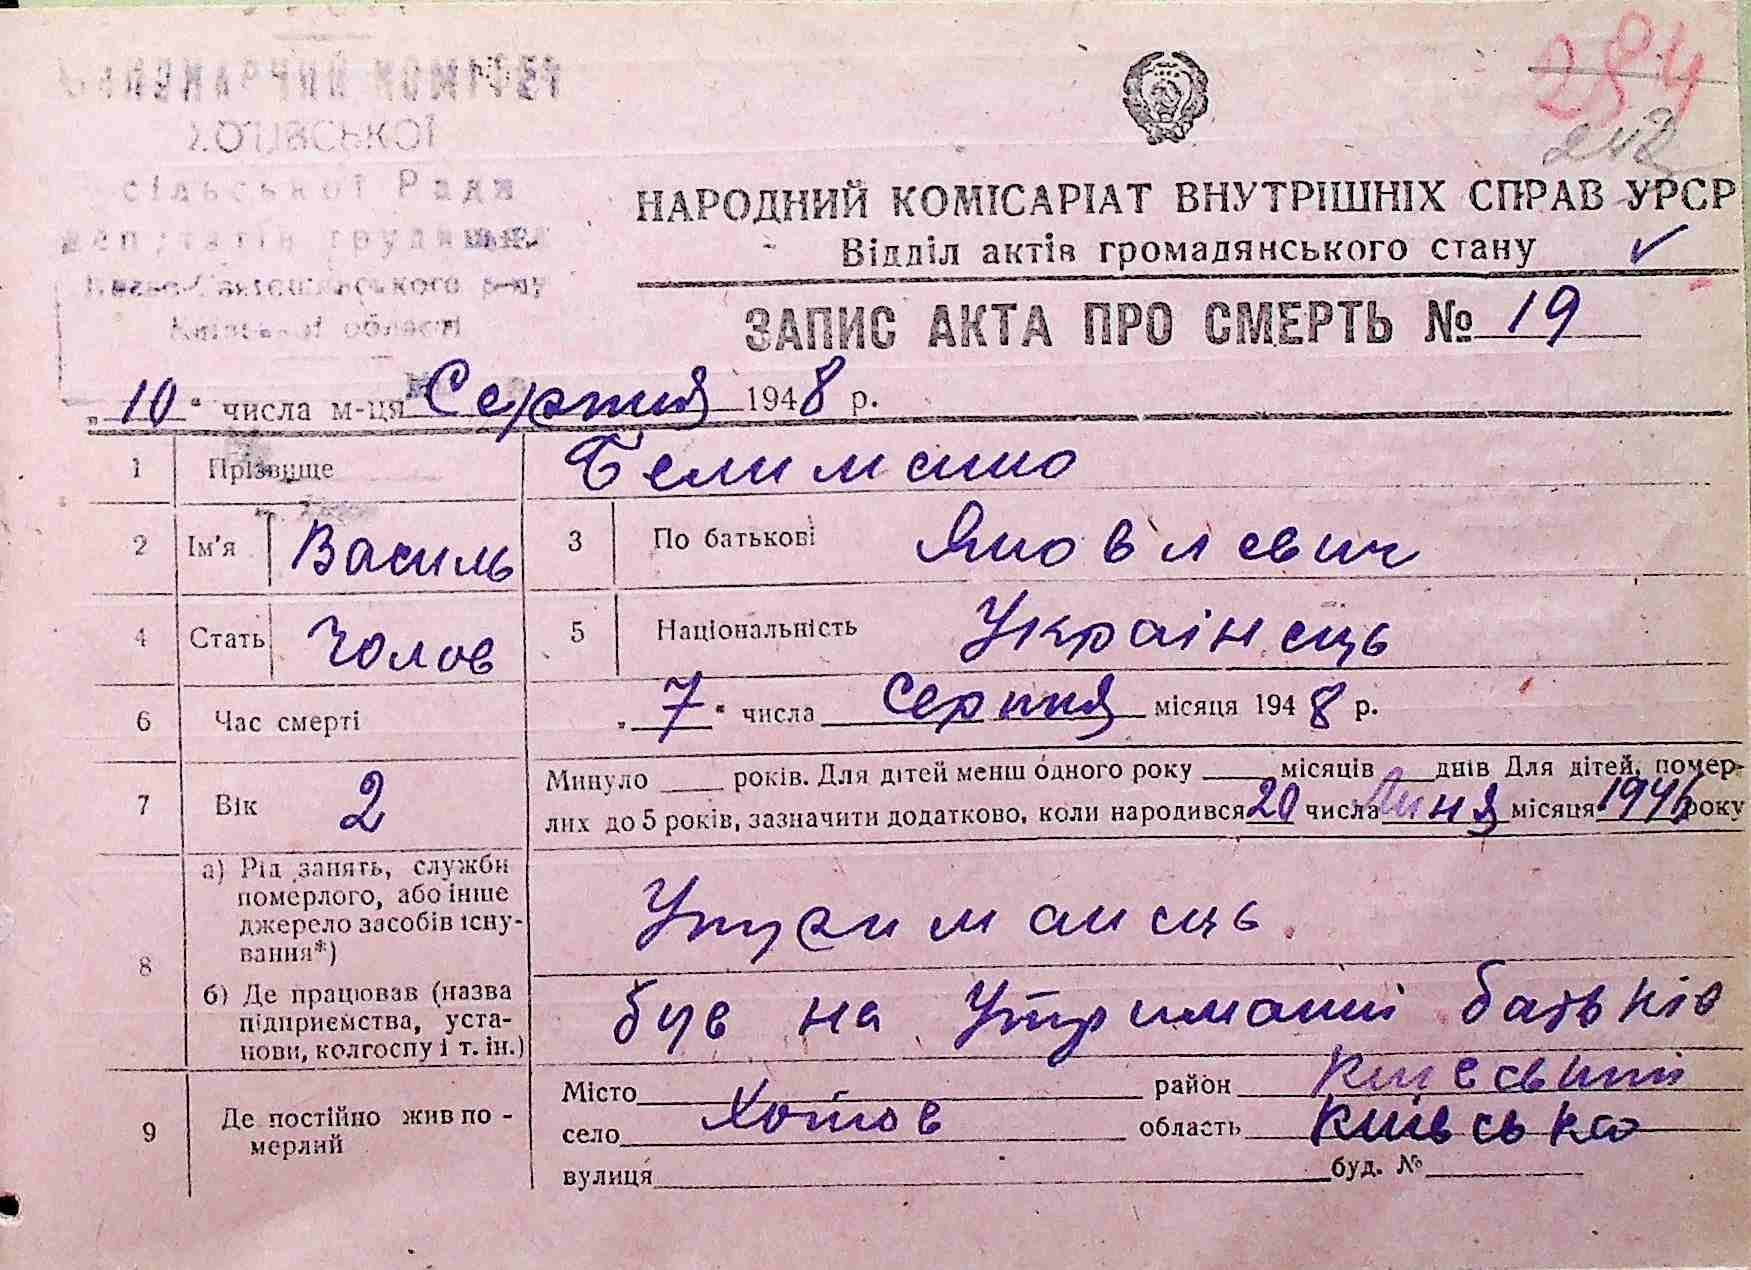 284
242
ВИКОНАВЧИЙ КОМІТЕТ
ХОТІВСЬКОЇ
сільської Ради
депутатів трудящих
Києво-Святошинського р-ну
Київської області
НАРОДНИЙ КОМІСАРІАТ ВНУТРІШНІХ СПРАВ УРСР
Відділ актів громадянського стану
ЗАПИС АКТА ПРО СМЕРТЬ № 19
„10“ числа м-ця Серпня 1948 р.
1 Прізвище
2 Ім'я Василь 3 По батькові Яковлевич
4 Стать Чолов 5 Національність Українець
6 Час смерті „7“ числа Серпня місяця 1948 р.
7 Вік 2 Минуло ____ років. Для дітей менш одного року ____ місяців ____ днів Для дітей, помер-
лих до 5 років, зазначити додатково, коли народився 20 числа місяця 1946 року
8 а) Рід занять, служби
померлого, або інше
джерело засобів існу-
вання*)
Утриманець
б) Де працював (назва
підприємства, уста-
нови, колгоспу і т. ін.)
був на Утриманні батьків
9 Де постійно жив по-
мерлий
Місто район Киевский
село Хотов область Київська
вулиця буд. №